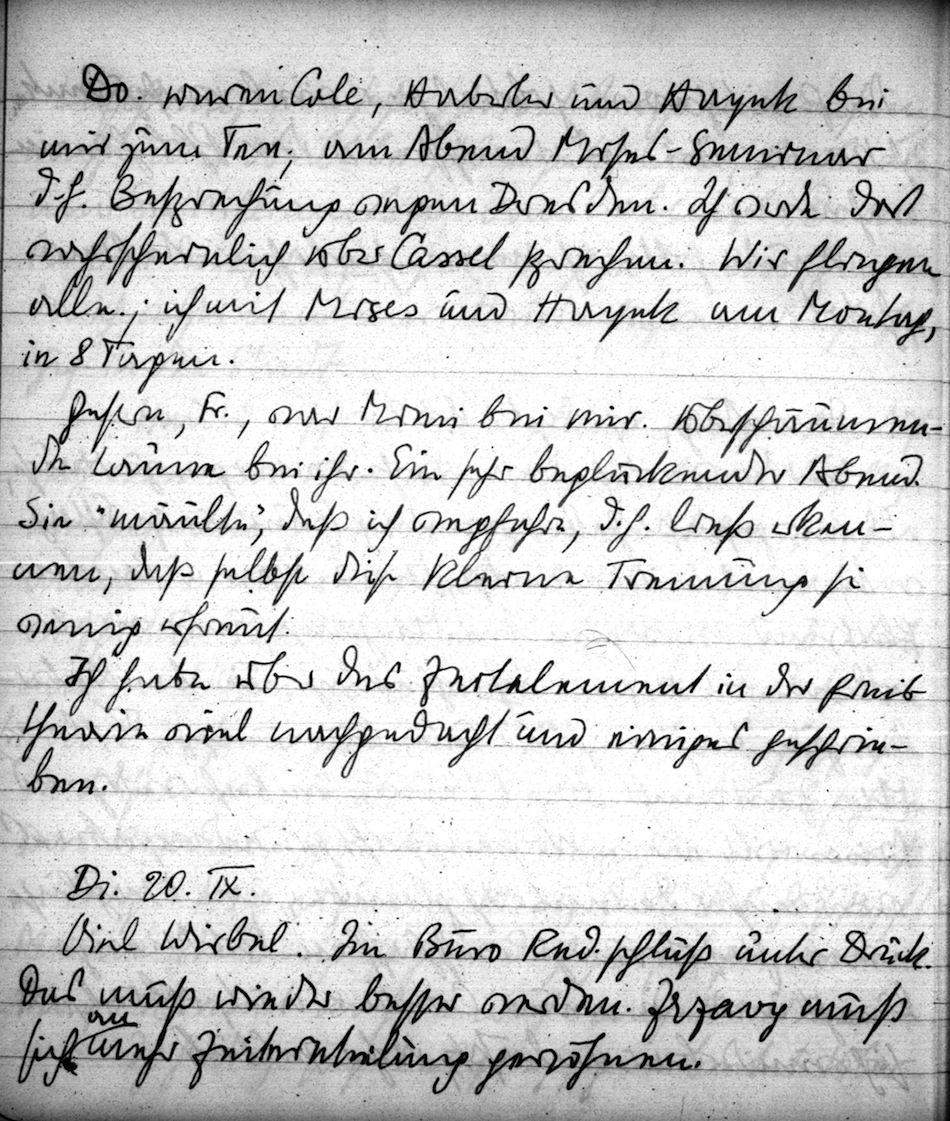 Do. waren Cole, Haberler und Hayek bei
mir zum Tee; am Abend Mises-Seminar
d.h. Besprechung wegen Dresden. Ich werde dort
wahrscheinlich über Cassel sprechen. Wir fliegen
alle; ich mit Mises und Hayek am Montag,
in 8 Tagen.
Gestern, Fr., war Mimi bei mir. Überschäumen-
de Laune bei ihr. Ein sehr beglückender Abend.
Sie "mäulte", daß ich wegfahre, d.h. ließ erken-
nen, daß selbst diese kleine Trennung sie
wenig erfreut.
Ich habe über das Zeitelement in der Preis
theorie viel nachgedacht und einiges geschrie-
ben.
Di. 20. IX.
Viel Wirbel. Im Büro Red.schluß unter Druck.
Das muß wieder besser werden. Zrzavy muß
sich an mehr Zeiteinteilung gewöhnen.